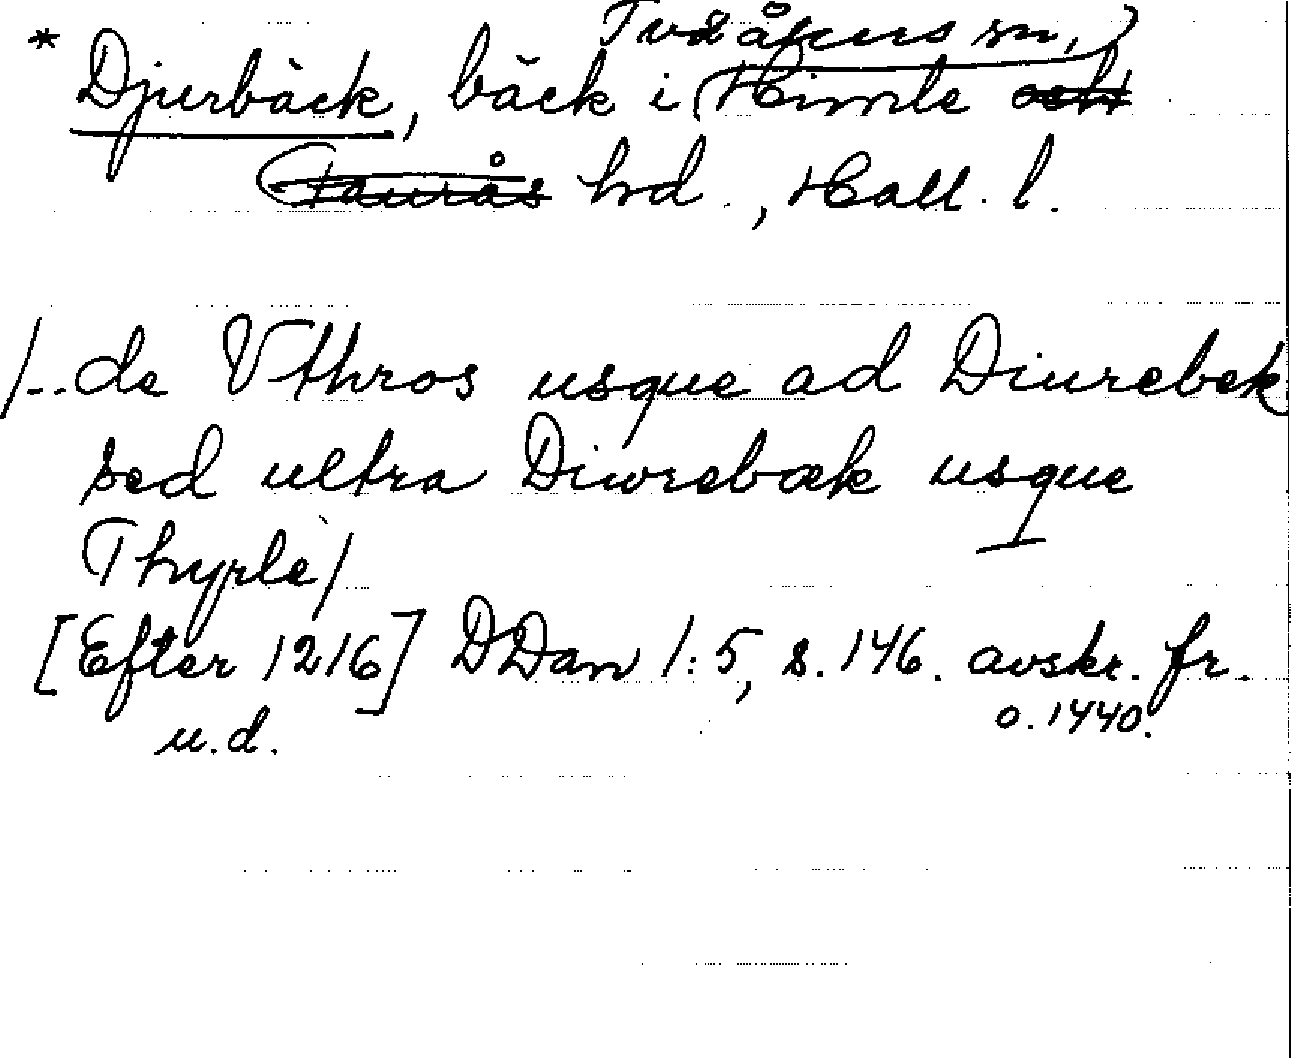 Tvååkers sn,
* Djurbäck, bäck i Himle och
Faurås hd., Hall. l.
/..de Vthros usque ad Diurebek
sed ultra Diwrebæk usque
Thyrle/
[Efter 1216] DDan 1:5, s. 146. avskr. fr.
u.d. o. 1440.